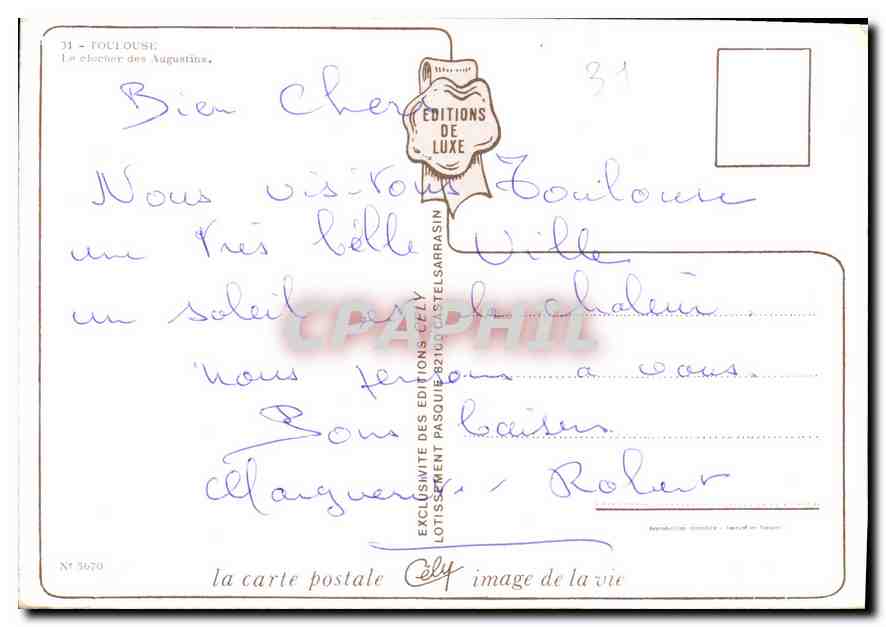 31 - TOULOUSE
Le clocher des Augustins.
31
EDITIONS
DE
LUXE
Bien Chers
Nous visitons Toulouse
une très bélle Ville
un soleil et de la chaleur.
nous pensons a vous.
Bons baisers
Marguerite, Robert
CPAPHIL
EXCLUSIVITE DES EDITIONS CELY
LOTISSEMENT PASQUIE 82100 CASTELSARRASIN
Reproduction interdite -
N° 5670
la carte postale Cély image de la vie